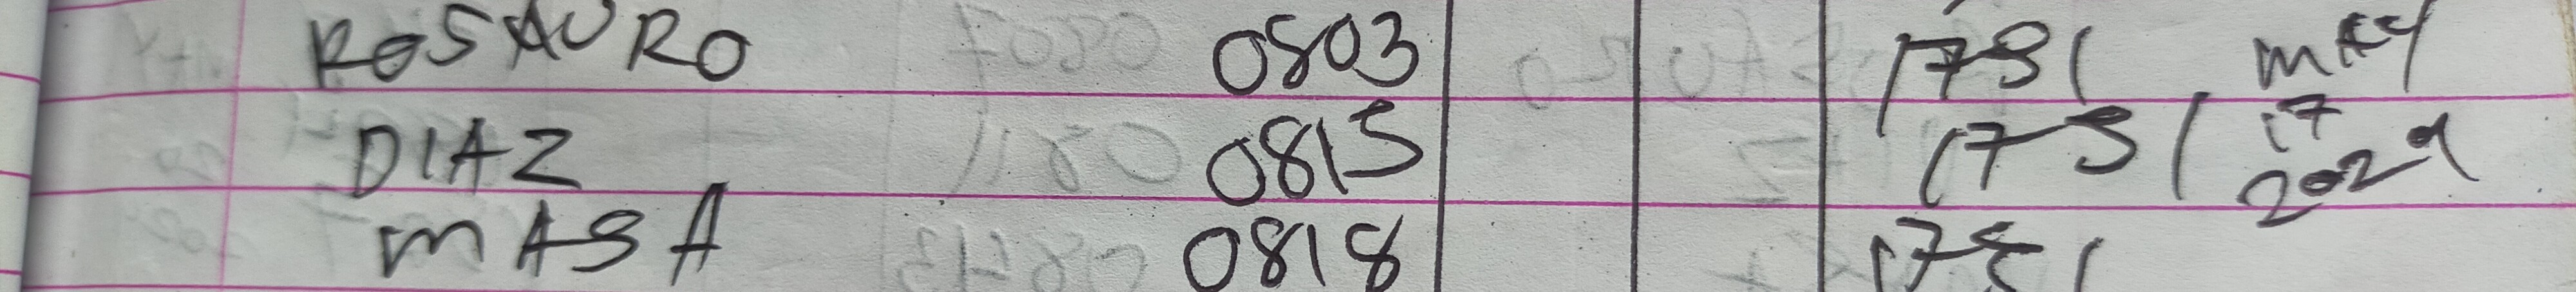 ROSAURO 0803 1731 MAY
DIAZ 0815 1731 17
2024
MASA 0818 1751